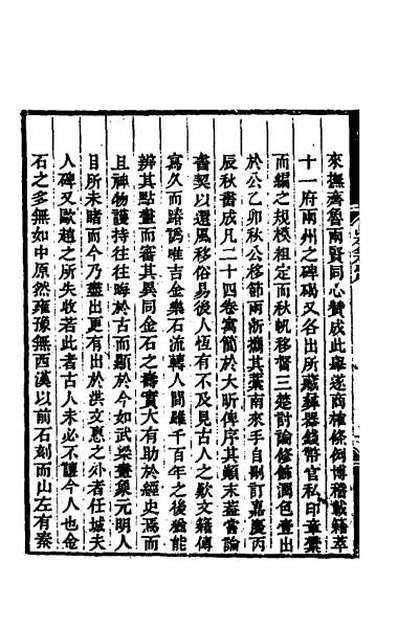 來撫齊魯兩賢同心贊成此舉遂商榷條例博稽載籍萃
十一府兩州之碑碣又各出所藏彝器錢幣官私印章彙
而編之規模粗定而秋帆移督三楚討論修飾潤色壹出
於公乙卯秋公移節兩浙攜其藁南來手自刪訂嘉慶丙
辰秋書成凡二十四卷寓簡於大昕俾序其顛末蓋嘗論
書契以還風移俗易後人恆有不及見古人之歎文籍傳
寫久而踳譌唯吉金樂石流轉人間雖千百年之後猶能
辨其點畫而審其異同金石之壽實大有助於經史焉而
且神物護持往往晦於古而顯於今如武梁畫象元明人
目所未睹而今乃盡出更有出於洪文惠之外者任城夫
人碑又歐趙之所失收若此者古人未必不讓今人也金
石之多無如中原然雍豫無西漢以前石刻而山左有秦